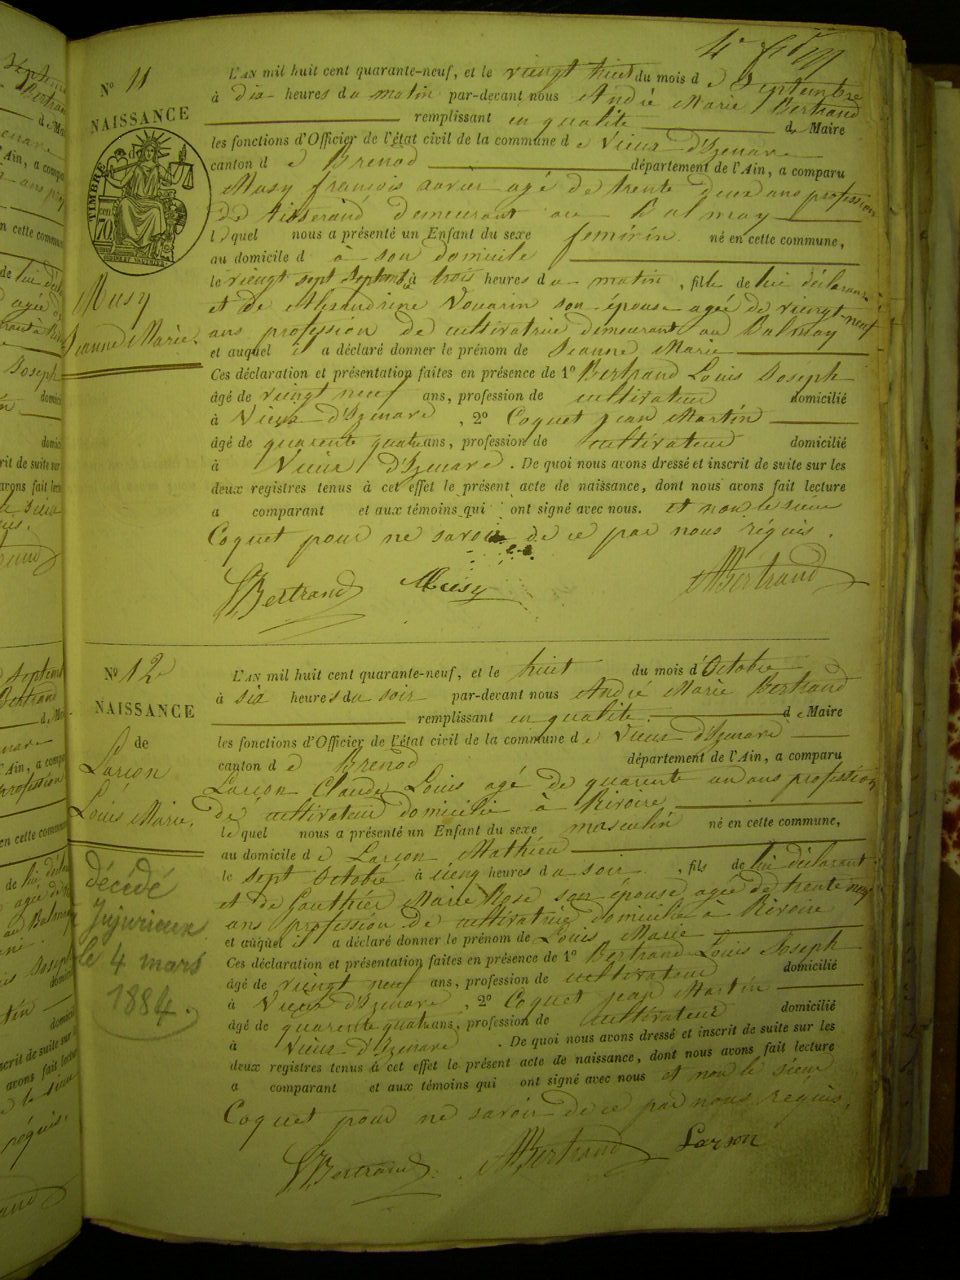 4e
N° 11
NAISSANCE
TIMBRE
70
Musy
Jeanne Marie.
L'AN mil huit cent quarante-neuf, et le viengt huit du mois de Septembre
à dix heures du matin par-devant nous André Marie Bertrand
remplissant en qualité de Maire
les fonctions d'Officier de l'état civil de la commune de Vieux d'Izenave
canton de Brenod département de l'Ain, a comparu
Musy françois agé de trente deux ans profession
de tisserand demeurant au Balmay
lequel nous a présenté un Enfant du sexe féminin né en cette commune,
au domicile d à son domicile
le viengt sept Septembre à trois heures du matin, fille de lui déclarant
et de Alexandrine Vouarin son épouse agée de viengt-neuf
ans profession de cultivatrice demeurant au Balmay
et auquel il a déclaré donner le prénom de Jeanne Marie
Ces déclaration et présentation faites en présence de 1° Bertrand Louis Joseph
âgé de viengt neuf ans, profession de cultivateur domicilié
à Vieux d'Izenave, 2° Coquet jean Martin
âgé de quarente quatre ans, profession de cultivateur domicilié
à Vieux d'Izenave. De quoi nous avons dressé et inscrit de suite sur les
deux registres tenus à cet effet le présent acte de naissance, dont nous avons fait lecture
a comparant et aux témoins qui ont signé avec nous. et non le sieur
Coquet pour ne savoir de ce par nous réquis.
LBertrand Musy AMBertrand
N° 12
NAISSANCE
de
Larçon
Louis Marie.
décédé
Jujurieux
le 4 mars
1884.
L'AN mil huit cent quarante-neuf, et le huit du mois d'Octobre
à six heures du soir par-devant nous André Marie Bertrand
remplissant en qualité de Maire
les fonctions d'Officier de l'état civil de la commune de Vieux d'Izenave
canton de Brenod département de l'Ain, a comparu
Larçon Claude Louis agé de quarente un ans profession
de cultivateur domicilié à Rivoire
lequel nous a présenté un Enfant du sexe masculin né en cette commune,
au domicile de Larçon Mathieu
le sept Octobre à cienq heures du soir, fils de lui déclarant
et de Gauthier Marie Rose son épouse agée de trente neuf
ans profession de cultivatrice domicilié à Rivoire
et auquel il a déclaré donner le prénom de Louis Marie
Ces déclaration et présentation faites en présence de 1° Bertrand Louis Joseph
âgé de viengt neuf ans, profession de cultivateur domicilié
à Vieux d'Izenave, 2° Coquet jean Martin
âgé de quarente quatre ans, profession de cultivateur domicilié
à Vieux d'Izenave. De quoi nous avons dressé et inscrit de suite sur les
deux registres tenus à cet effet le présent acte de naissance, dont nous avons fait lecture
a comparant et aux témoins qui ont signé avec nous et non le sieur
Coquet pour ne savoir de ce par nous réquis.
LBertrand AMBertrand Larçon